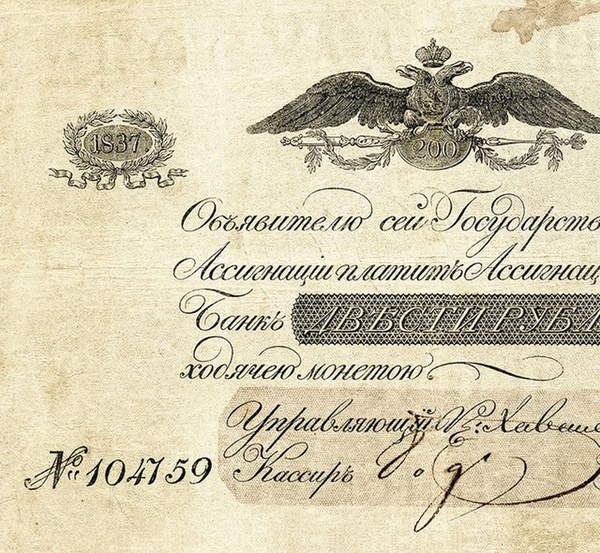 1837.
200
Объявителю сей Государств
Ассигнаціи платитъ Ассигнац
Банкъ ДВѢСТИ РУБЛ
ходячею монетою
Управляющій
№: 104759 Кассиръ